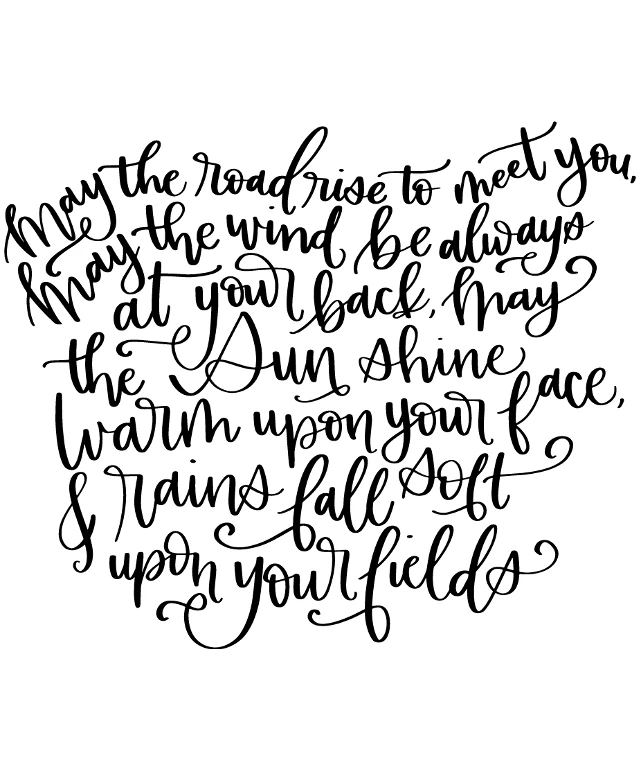 May the road rise to meet you,
May the wind be always
at your back, May
the Sun shine
Warm upon your face,
& rains fall soft
upon your fields